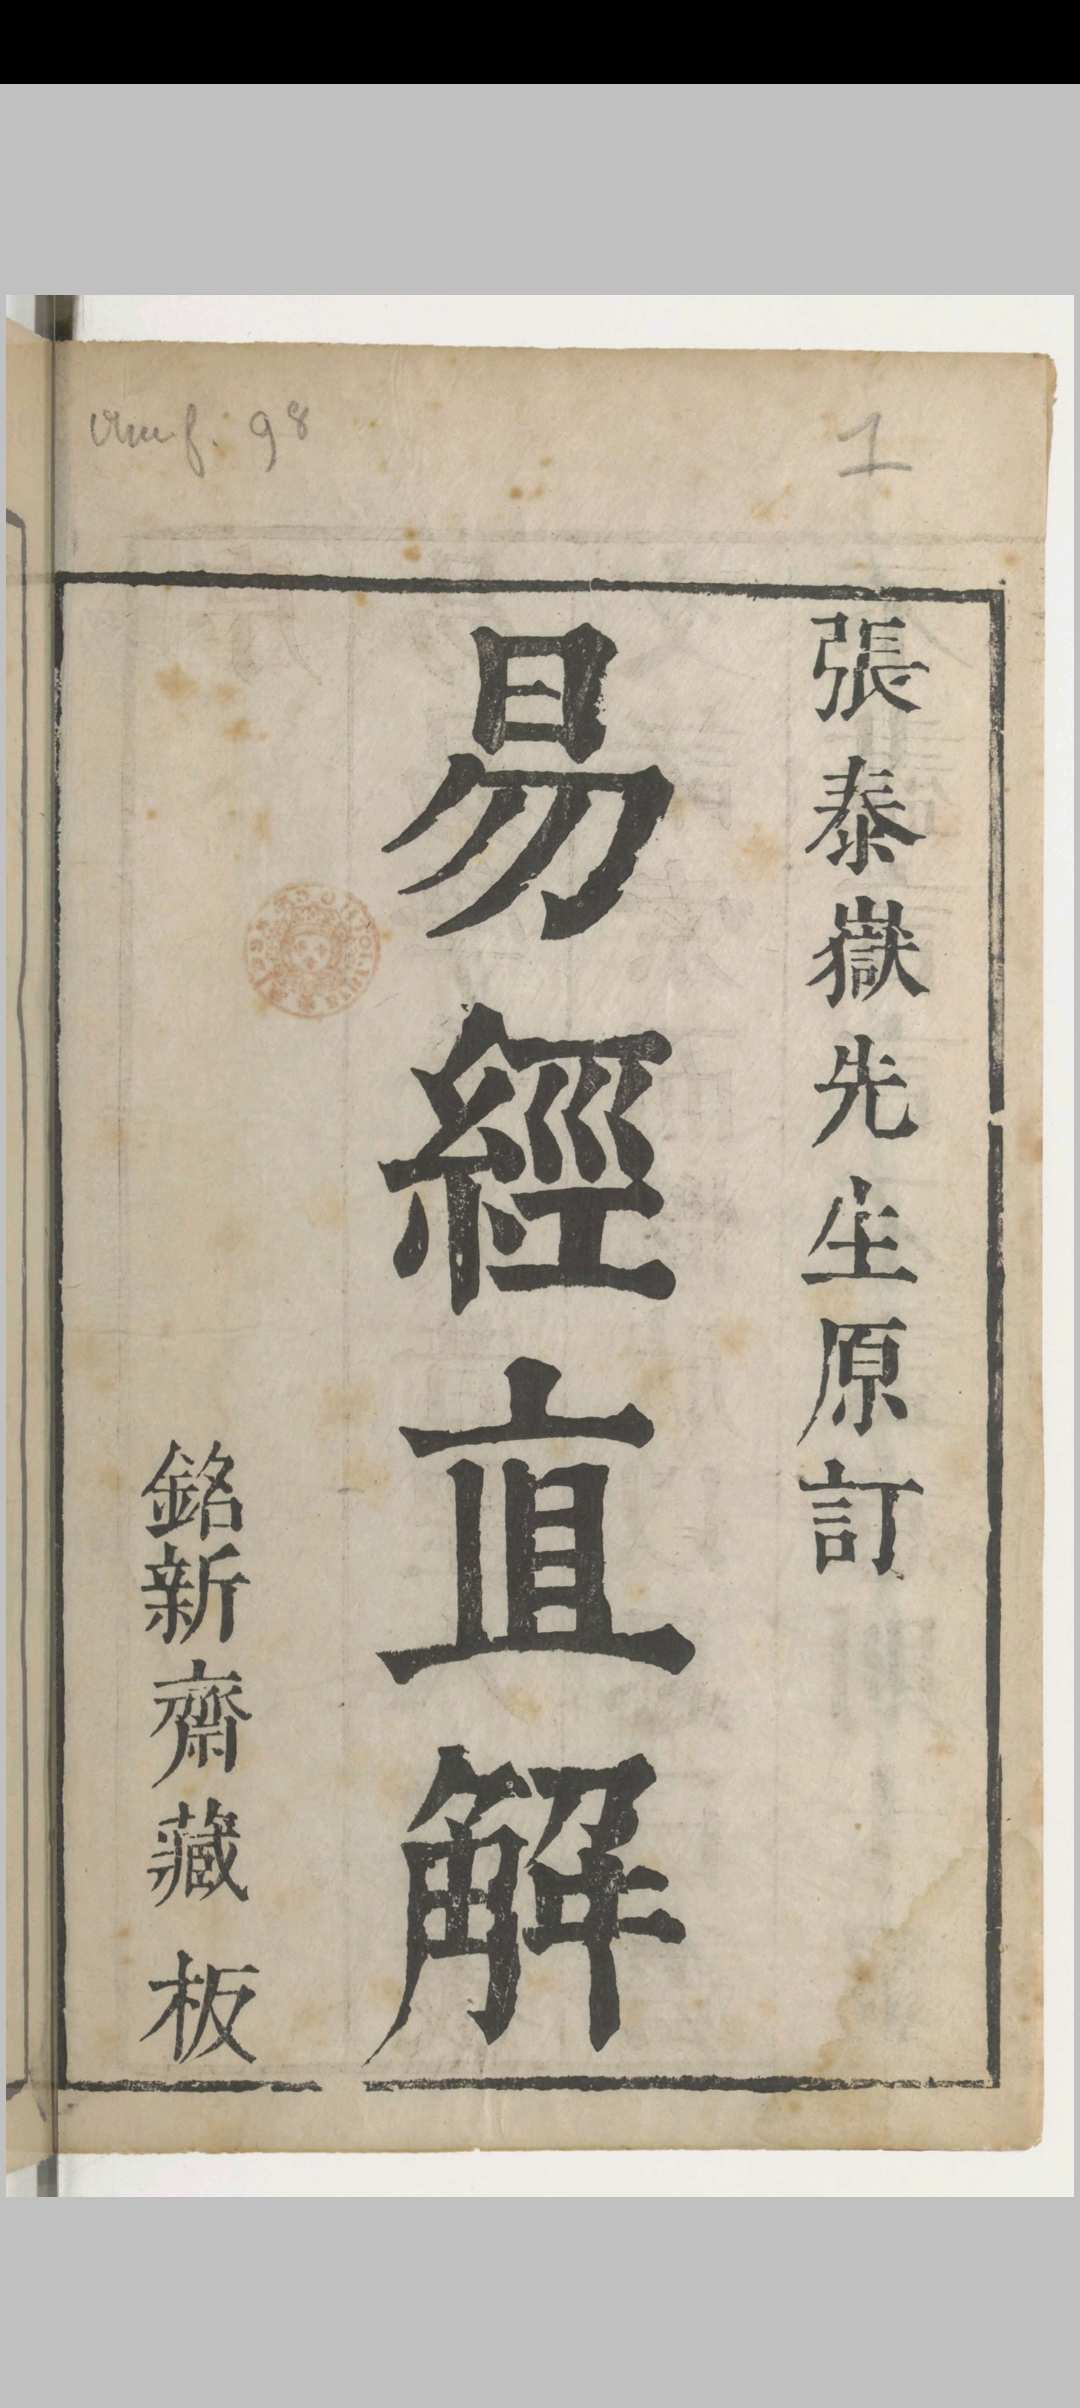 98
1
張泰嶽先生原訂
易經直解
銘新齋藏板